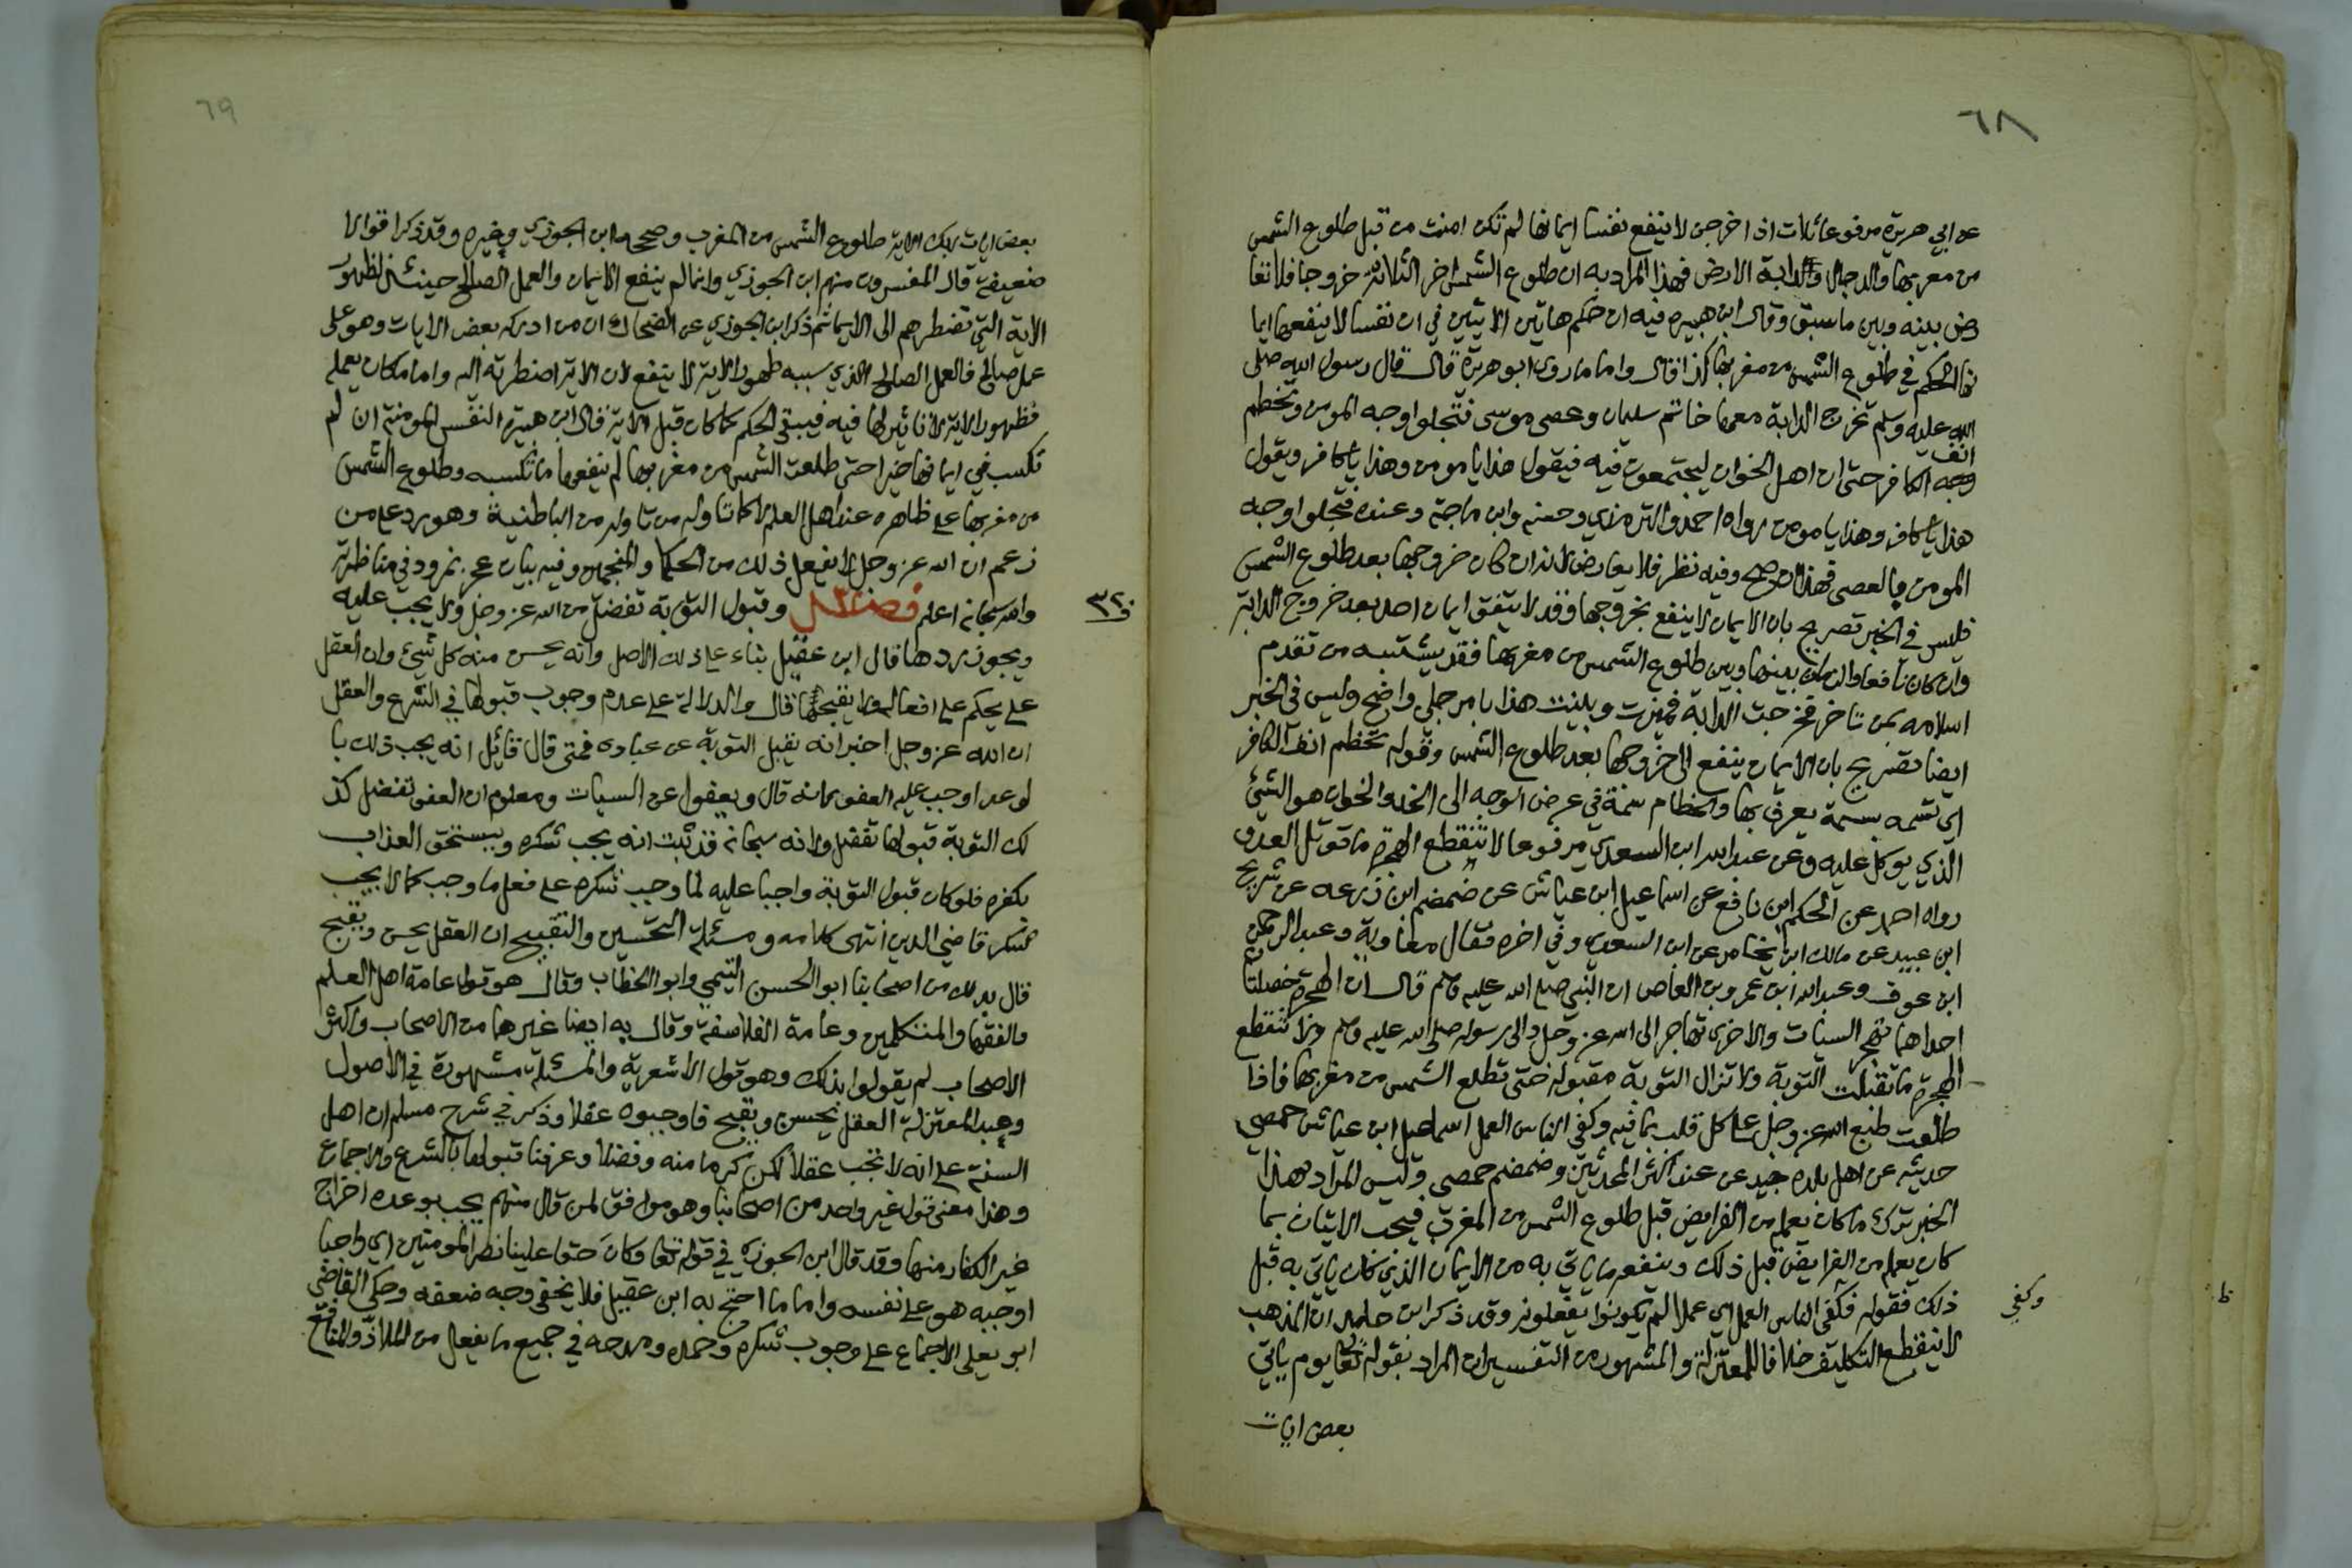 ٦٨
عن ابي هريرة مرفوعا ثلاث اذا خرجن لا ينفع نفسا ايمانها لم تكن امنت من قبل طلوع الشمس
من مغربها والدجال والدابة الارض فهذا المراد به ان طلوع الشمس اخر الثلاثة خروجا فلا تعا
رض بينه وبين ما سبق وقال ابن هبيره فيه ان حكم هاتين الايتين في ان نفسا لا ينفعها ايما
نها الحكم في طلوع الشمس من مغربها كذا قال واما ما روى ابو هريرة قال قال رسول الله صلى
الله عليه وسلم تخرج الدابة معها خاتم سليمان وعصى موسى فتجلوا وجه المومن وتخطم
انف
وجه الكافر حتى ان اهل الخوان ليجتمعون فيه فيقول هذا يا مومن وهذا يا كافر ويقول
هذا يا كافر وهذا يا مومن رواه احمد والترمذي وحسنه وابن ماجة وعنده فتجلوا وجه
المومن بالعصى فهذا ان صح وفيه نظر فلا يعارض لانه ان كان خروجها بعد طلوع الشمس
فليس في الخبر تصريح بان الايمان لا ينفع بخروجها وقد لا يتفق ايمان احد بعد خروج الدابة
وان كان نافعا والزمان بينها وبين طلوع الشمس من مغربها فقد يشتبه من تقدم
اسلامه بمن تاخر فخرجت الدابة فميزت وبينت هذا بامر جلي واضح وليس في الخبر
ايضا تصريح بان الايمان ينفع الى خروجها بعد طلوع الشمس وقوله تخطم انف الكافر
اي تسمه بسمة يعرف بها والخطام سمة في عرض الوجه الى الخد والخوان هو الشيئ
الذي يوكل عليه وعن عبد الله ابن السعدي مرفوعا لا تنقطع الهجرة ما قوتل العدو
رواه احمد عن الحكم ابن نافع عن اسماعيل ابن عياش عن ضمضم ابن زرعه عن شريح
ابن عبيد عن مالك ابن يخامر عن ابن السعدي وفي اخره فقال معاوية وعبد الرحمن
ابن عوف وعبد الله ابن عمرو بن العاص ان النبي صلى الله عليه وسلم قال ان الهجرة خصلتان
احداهما تهجر السيئات والاخرى تهاجر الى الله عز وجل والى رسوله صلى الله عليه وسلم ولا تنقطع
الهجرة ما تقبلت التوبة ولا تزال التوبة مقبولة حتى تطلع الشمس من مغربها فاذا
طلعت طبع الله عز وجل على كل قلب بما فيه وكفي الناس العمل اسماعيل ابن عياش حمصي
حديثه عن اهل بلده جيد عن عند اكثر المحدثين وضمضم حمصي وليس المراد بهذا
الخبر ترك ما كان يعمله من الفرايض قبل طلوع الشمس من المغرب فيجب الاتيان بما
كان يعمله من الفرايض قبل ذلك وينفعه ما ياتي به من الايمان الذي كان ياتي به قبل
ذلك فقوله فكفى الناس العمل اي عملا لم يكونوا يفعلونه وقد ذكر ابن حامد ان المذهب
وكفي
ظ
لا ينقطع التكليف خلافا للمعتزلة والمشهور من التفسير ان المراد بقوله تعالى يوم ياتي
بعض ايات
٦٩
بعض ايات ربك الاية طلوع الشمس من المغرب وصححه ابن الجوزي وغيره وقد ذكر اقوالا
ضعيفة قال المفسرون منهم ابن الجوزي وانما لم ينفع الايمان والعمل الصالح حينئذ لظهور
الاية التي تضطرهم الى الايمان ثم ذكر ابن الجوزي عن الضحاك ان من ادركه بعض الايات وهو على
عمل صالح فالعمل الصالح الذي سببه ظهور الاية لا ينفع لان الاية اضطرته اليه واما ما كان يعمله
فظهور الاية لا تاثير لها فيه فيبقى الحكم كما كان قبل الاية قال ابن هبيرة النفس المومنة ان لم
تكسب في ايمانها خيرا حتى طلعت الشمس من مغربها لم ينفعها ما تكسبه وطلوع الشمس
من مغربها على ظاهره عند اهل العلم لا كما تاوله من تاوله من الباطنية وهو رد على من
زعم ان الله عز وجل لا يفعل ذلك من الحكما والمنجمين وفيه بيان عجز نمرود في مناظرته
والله سبحانه اعلم فصل وقبول التوبة تفضل من الله عز وجل ولا يجب عليه
ف ٣٢
ويجوز ردها قال ابن عقيل بناء على ذلك الاصل وانه يحسن منه كل شيئ وان العقل
على يحكم على افعاله ولا يقبحها قال والدلالة على عدم وجوب قبولها في الشرع والعقل
ان الله عز وجل اخبر انه يقبل التوبة عن عباده فمتى قال قائل انه يجب ذلك با
لوعد اوجب عليه العفو بمانه قال ويعفوا عن السيات ومعلوم ان العفو تفضل كذ
لك التوبة قبولها تفضل ولانه سبحانه قد ثبت انه يجب شكره ويستحق العذاب
بكفره فلو كان قبول التوبة واجبا عليه لما وجب شكره على فعل ما وجب كما لا يجب
شكر قاضي الدين انتهى كلامه ومسئلة التحسين والتقبيح ان العقل يحسن ويقبح
قال بذلك من اصحابنا ابو الحسن التيمي وابو الخطاب وقال هو قول عامة اهل العلم
والفقها والمتكلمين وعامة الفلاسفة وقال به ايضا غيرها من الاصحاب واكثر
الاصحاب لم يقولوا بذلك وهو قول الاشعرية والمسئلة مشهورة في الاصول
وعند المعتزلة العقل يحسن ويقبح فاوجبوه عقلا وذكر في شرح مسلم ان اهل
السنة على انه لا تجب عقلا لكن كرما منه وفضلا وعرفنا قبولها بالشرع والاجماع
وهذا معنى قول غير واحد من اصحابنا وهو موافق لمن قال منهم يجب بوعده اخراج
غير الكفار منها وقد قال ابن الجوزي في قوله تعا وكان حقا علينا نصر المومنين اي واجبا
اوجبه هو على نفسه واما ما احتج به ابن عقيل فلا يخفى وجه ضعفه وحكى القاضي
ابو يعلى الاجماع على وجوب شكره وحمده ومدحه في جميع ما يفعله من الملاذ والمنافع